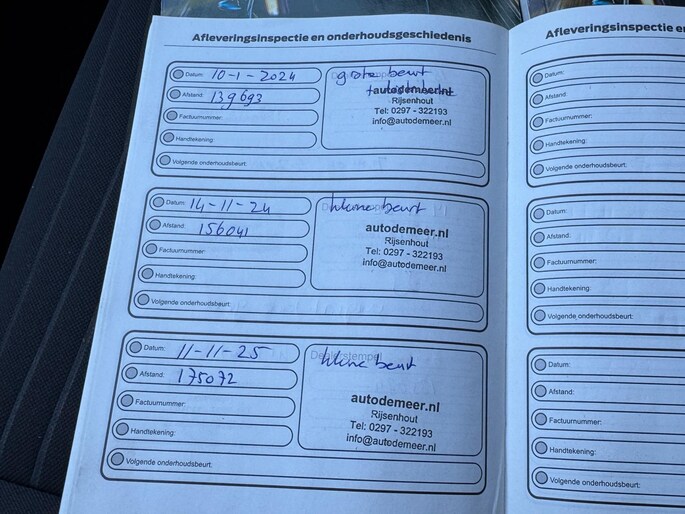 Afleveringsinspectie en onderhoudsgeschiedenis
Datum: 10-1-2024
Afstand: 139693
Factuurnummer:
Handtekening:
Volgende onderhoudsbeurt:
grote beurt
autodemeer.nl
Rijsenhout
Tel: 0297 - 322193
info@autodemeer.nl
Datum: 14-11-24
Afstand: 156041
Factuurnummer:
Handtekening:
Volgende onderhoudsbeurt:
kleine beurt
autodemeer.nl
Rijsenhout
Tel: 0297 - 322193
info@autodemeer.nl
Datum: 11-11-25
Afstand: 175072
Factuurnummer:
Handtekening:
Volgende onderhoudsbeurt:
Dealerstempel
kleine beurt
autodemeer.nl
Rijsenhout
Tel: 0297 - 322193
info@autodemeer.nl
Afleveringsinspectie e
Datum:
Afstand:
Factuurnummer:
Handtekening:
Volgende onderhoudsbeurt:
Datum:
Afstand:
Factuurnummer:
Handtekening:
Volgende onderhoudsbeurt:
Datum:
Afstand:
Factuurnummer:
Handtekening:
Volgende onderhoudsbeurt: